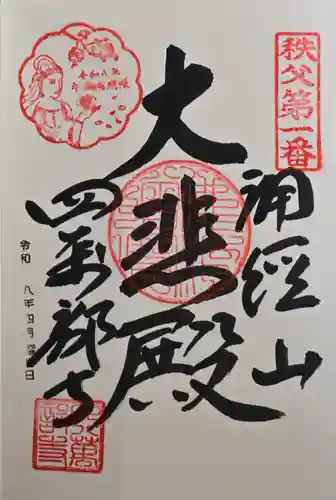 秩父第一番
誦經山
大悲殿
四萬部寺
令和 八年四月
令和八年